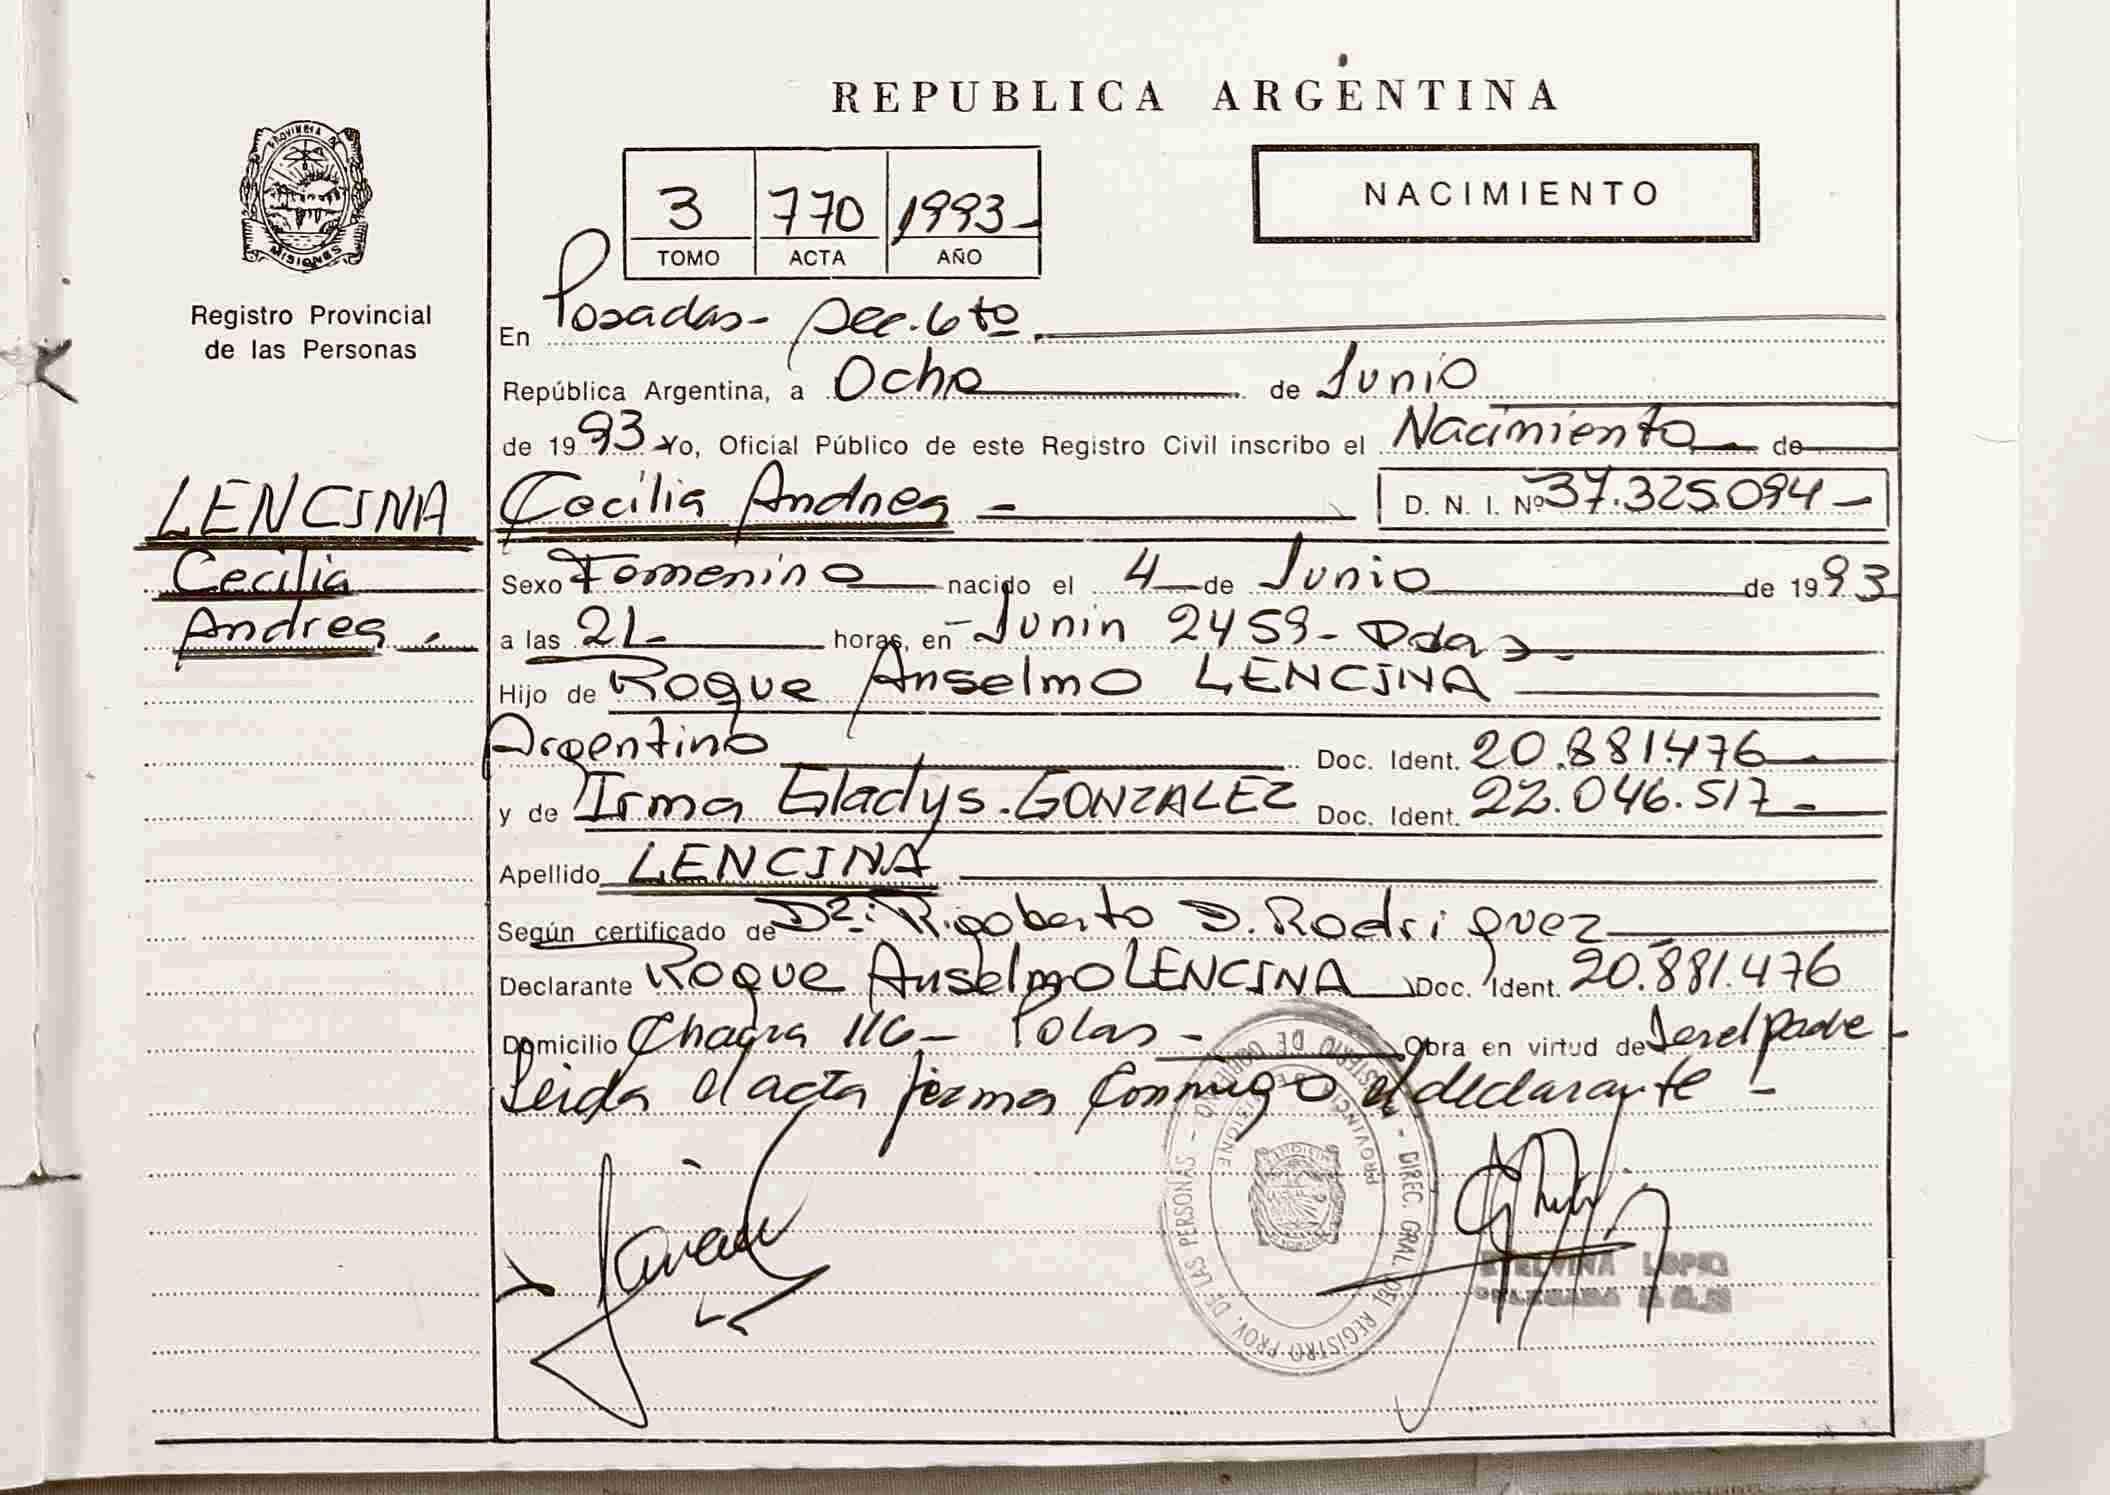 REPUBLICA ARGENTINA
NACIMIENTO
3 770 1993-
TOMO ACTA AÑO
PROVINCIA DE
MISIONES
Registro Provincial
de las Personas
LENCINA
Cecilia
Andrea -
En Posadas- Sec. 6to
República Argentina, a Ocho de Junio
de 1993 Yo, Oficial Público de este Registro Civil inscribo el Nacimiento de
Cecilia Andrea - D. N. I. Nº 37.325.094-
Sexo Femenino nacido el 4 de Junio de 1993
a las 21- horas, en Junin 2459- Pdas-
Hijo de Roque Anselmo LENCINA
Argentino Doc. Ident. 20.881.476-
y de Irma Gladys. GONZALEZ Doc. Ident. 22.046.517-
Apellido LENCINA
Según certificado de Dr. Rigoberto D. Rodriguez
Declarante Roque Anselmo LENCINA Doc. Ident. 20.881.476
Domicilio Chacra 116- Obra en virtud de Ser el padre-
Leida el acta firma conmigo el declarante -
MINISTERIO DE GOBIERNO - DIREC. GRAL. DEL REGISTRO PROV. DE LAS PERSONAS -
PROVINCIA DE MISIONES
LOPEZ